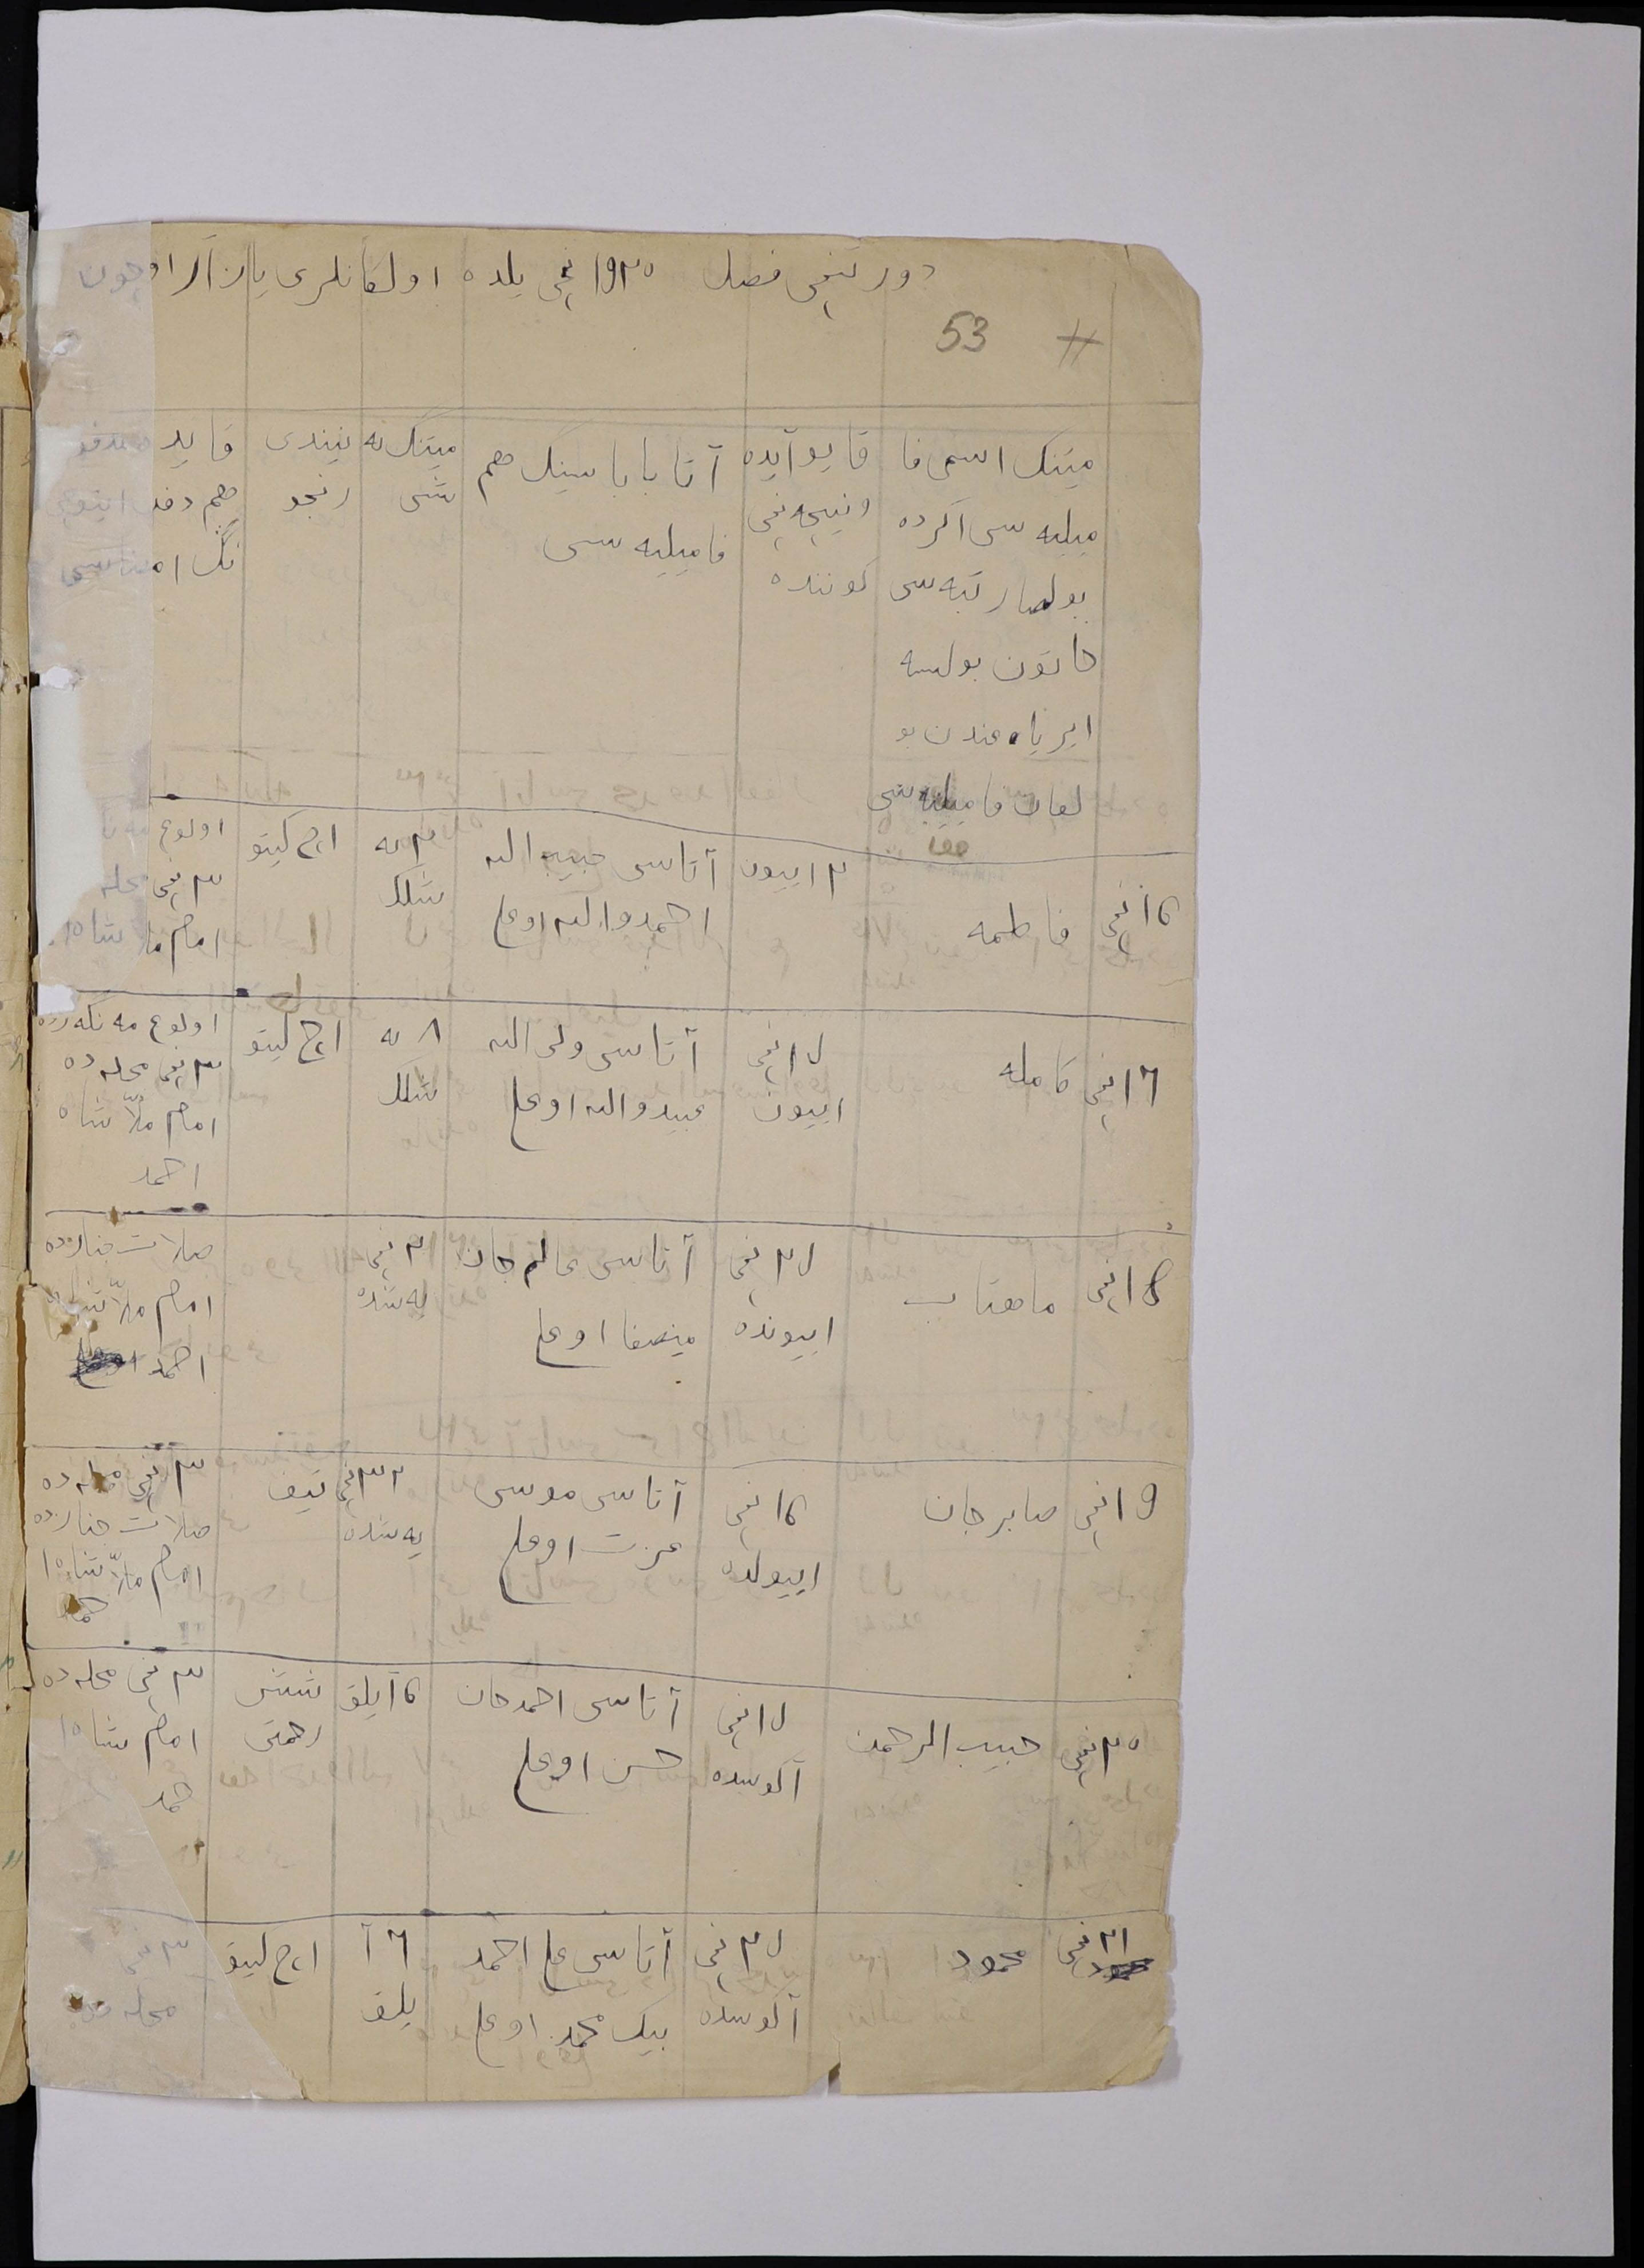 دورتنچی فصل ١٩٢٥ نچی یلده اولگانلری یازار اوچون
53
میتنک اسمی فا
میلیه سی اکرده
بولصا رتبه سی
خاتون بولسه
ایر یاه عندن بو
لغان فامیلیه سی
قایو آیده
ونیچه نچی
کوننده
آتا باباسینک هم
فامیلیه سی
میتنک نه
شی
نیندی
رنجو
قاید
هم دفن
نک امضاسی
١٦ نچی
فاطمه
٢ اییون
آتاسی حبیب الله
احمدوالله اوغلی
٢ یه
شلک
اچ کیتو
اولوغ
٣ نچی محله
امام ملا شاه
١٧ نچی
کامله
١٧ نچی
اییون
آتاسی ولی الله
عبیدوالله اوغلی
٨ یه
شلک
اچ کیتو
اولوغ
٣ نچی محله ده
امام ملا شاه
احمد
١٨ نچی
ماهتاب
٢٧ نچی
اییونده
آتاسی عالم جان
مینصفا اوغلی
٢ نچی
یه شده
صلات جنازده
امام ملا شاه
احمد
١٩ نچی
صابرجان
١٦ نچی
اییولده
آتاسی موسی
عزت اوغلی
٣٢ نچی
یه شده
تیف
٣ نچی محله ده
صلات جنازده
امام ملا شاه ا
حمد
٢٠ نچی
حبیب الرحمن
١٧ نچی
آکوسده
آتاسی احمدجان
حسن اوغلی
٦ آیلق
شیش
رحمتی
٣ نچی محله ده
امام شاه ا
حمد
٢١ نچی
محمود
٢٧ نچی
آکوسده
آتاسی علی احمد
بیک محمد اوغلی
٦ آ
یلق
اچ کیتو
٣ نچی
محله ده